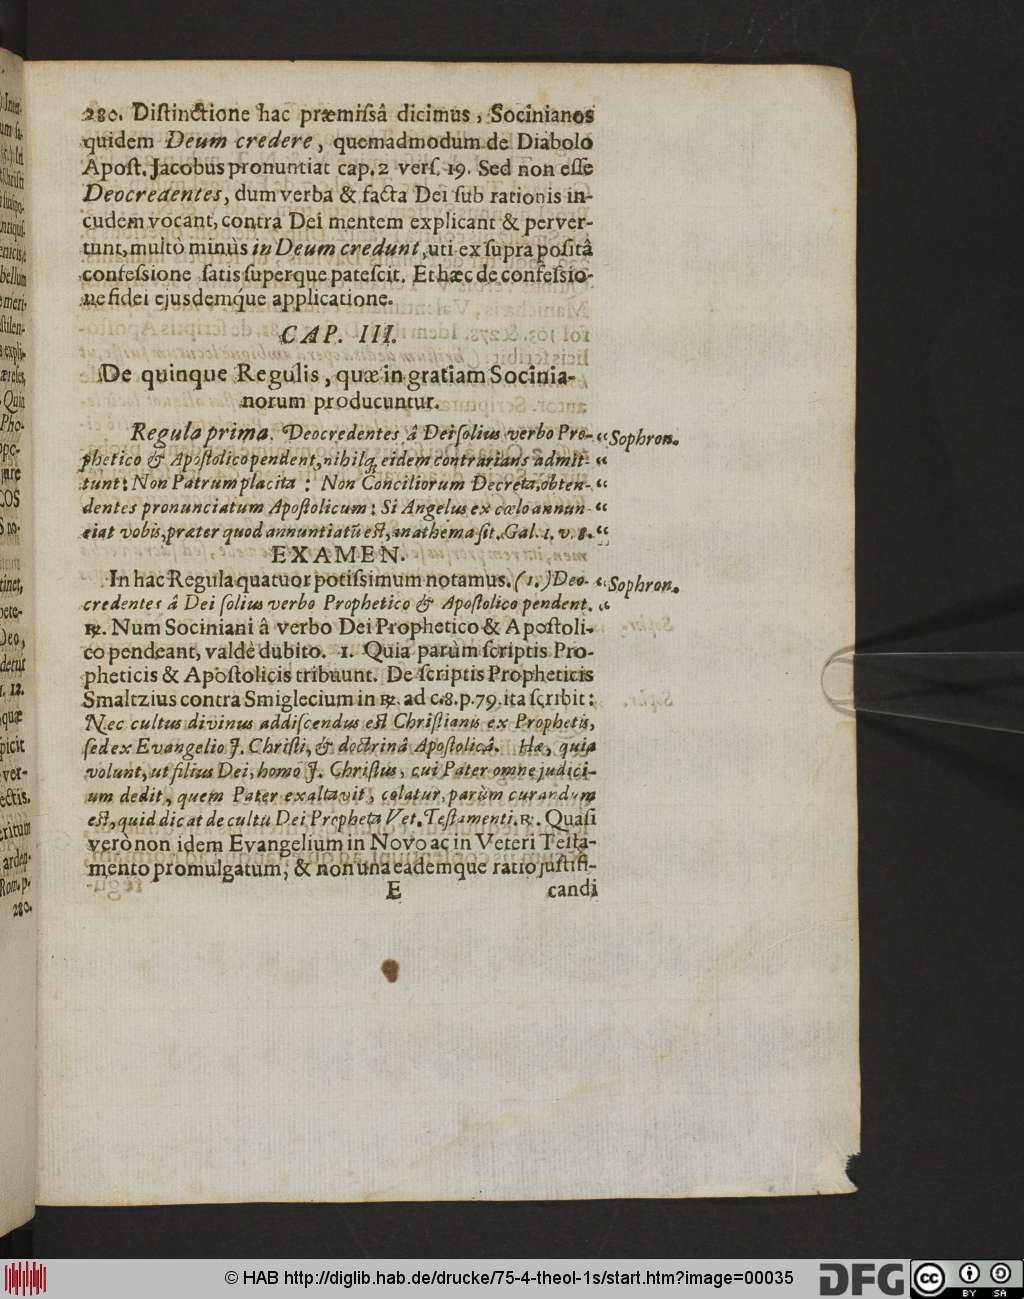 280. Distinctione hac præmissâ dicimus, Socinianos
quidem Deum credere, quemadmodum de Diabolo
Apost. Jacobus pronuntiat cap. 2 vers. 19. Sed non esse
Deocredentes, dum verba & facta Dei sub rationis in-
cudem vocant, contra Dei mentem explicant & perver-
tunt, multò minùs in Deum credunt, uti ex supra positâ
confessione satis superque patescit. Et hæc de confessio-
ne fidei ejusdemq́ue applicatione.
CAP. III.
De quinque Regulis, quæ in gratiam Socinia-
norum producuntur.
Regula prima. Deocredentes â Dei solius verbo Pro- “ Sophron.
phetico & Apostolico pendent, nihilq; eidem contrarians admit- “
tunt: Non Patrum placita: Non Conciliorum Decreta, obten- “
dentes pronunciatum Apostolicum: Si Angelus ex cœlo annun- “
ciat vobis, præter quod annuntiatū est, anathema sit. Gal. 1. v. 8. “
EXAMEN.
In hac Regula quatuor potissimum notamus. (1.) Deo- “ Sophron.
credentes â Dei solius verbo Prophetico & Apostolico pendent. “
℞. Num Sociniani â verbo Dei Prophetico & Apostoli-
co pendeant, valdè dubito. 1. Quia parùm scriptis Pro-
pheticis & Apostolicis tribuunt. De scriptis Propheticis
Smaltzius contra Smiglecium in ℞. ad c. 8. p. 79. ita scribit:
Nec cultus divinus addiscendus est Christianis ex Prophetis,
sed ex Evangelio J. Christi, & doctrinâ Apostolicâ. Hæ, quia
volunt, ut filius Dei, homo J. Christus, cui Pater omne judici-
um dedit, quem Pater exaltavit, colatur, parùm curandum
est, quid dicat de cultu Dei Propheta Vet. Testamenti. ℞. Quasi
verò non idem Evangelium in Novo ac in Veteri Testa-
mento promulgatum, & non una eademque ratio justifi-
E candi
© HAB http://diglib.hab.de/drucke/75-4-theol-1s/start.htm?image=00035
DFG
cc BY SA